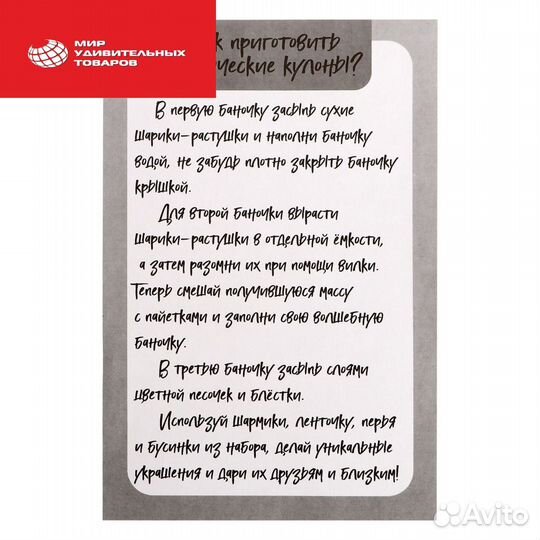 МИР
УДИВИТЕЛЬНЫХ
ТОВАРОВ
к приготовить
ческие кулоны?
В первую баночку засыпь сухие
шарики-растушки и наполни баночку
водой, не забудь плотно закрыть баночку
крышкой.
Для второй баночки вырасти
шарики-растушки в отдельной ёмкости,
а затем разомни их при помощи вилки.
Теперь смешай получившуюся массу
с пайетками и заполни свою волшебную
баночку.
В третью баночку засыпь слоями
цветной песочек и блёстки.
Используй шармики, ленточку, перья
и бусинки из набора, делай уникальные
украшения и дари их друзьям и близким!
Avito